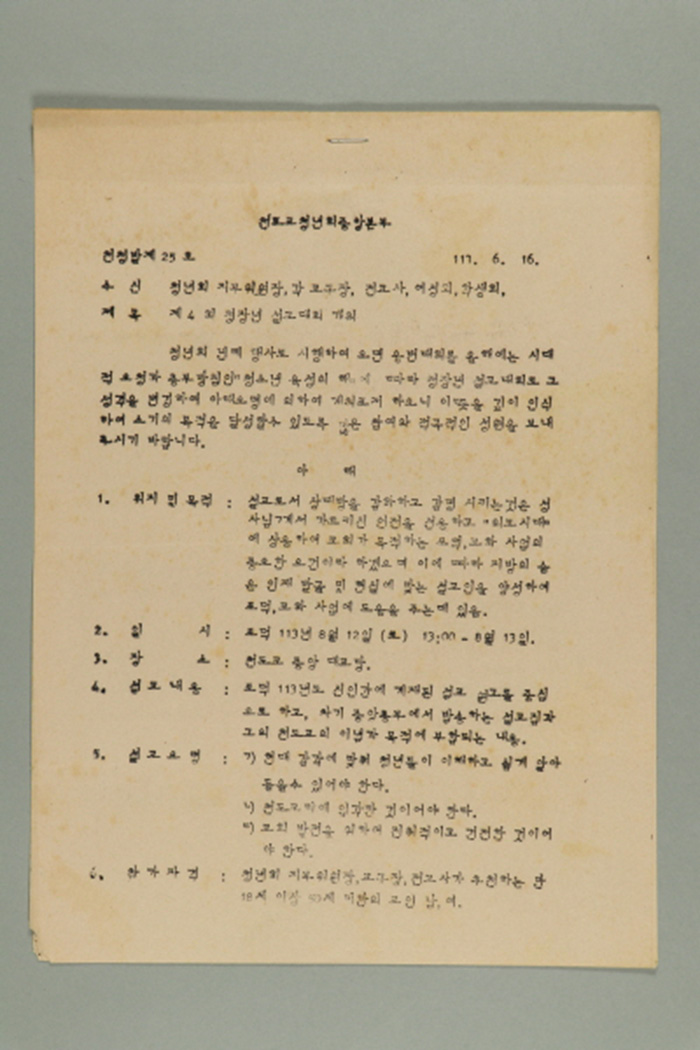 천도교청년회중앙본부
천청발제 25 호 113. 6. 16.
수 신 청년회 지부위원장, 각 교구장, 전교사, 여성회, 학생회,
제 목 제 4 회 청장년 설교대회 개최
청년회 년례 행사로 시행하여 오던 웅변대회를 올해에는 시대
적 요청과 총부방침인 청소년 육성의 따라 청장년 설교대회로 그
성격을 변경하여 아래요령에 의하여 개최로저 하오니 이뜻을 깊이 인식
하여 소기의 목적을 달성할수 있도록 많은 참여와 적극적인 성원을 보내
주시기 바랍니다.
아 래
1. 취지 및 목적 : 설교로서 상대방을 감화하고 감명 시키는것은 성
사님께서 가르치신 언전을 선용하고
에 상응하여 교회가 목적하는 포덕, 교화 사업의
중요한 요건이라 하겠으며 이에 따라 지방의 숨
은 인재 발굴 및 현실에 맞는 설교인을 양성하여
포덕, 교화 사업에 도움을 주는데 있음.
2. 일 시 : 포덕 113년 8월 12일 (토) 13:00 - 8월 13일.
3. 장 소 : 천도교 중앙 대교당.
4. 설교내용 : 포덕 113년도 신인간에 게재된 설교 원고를 중심
으로 하고, 차기 중앙총부에서 방송하는 설교집과
그외 천도교의 이념과 목적에 부합되는 내용.
5. 설교요령 : ㄱ) 현대 감각에 맞춰 청년들이 이해하고 쉽게 알아
들을수 있어야 한다.
ㄴ) 천도교리에 입각한 것이어야 한다.
ㄷ) 교회 발전을 위하여 진취적이고 건전한 것이어
야 한다.
6. 참가자격 : 청년회 지부위원장, 교구장, 전교사가 추천하는 만
18세 이상 세 미만의 교인 남, 여.